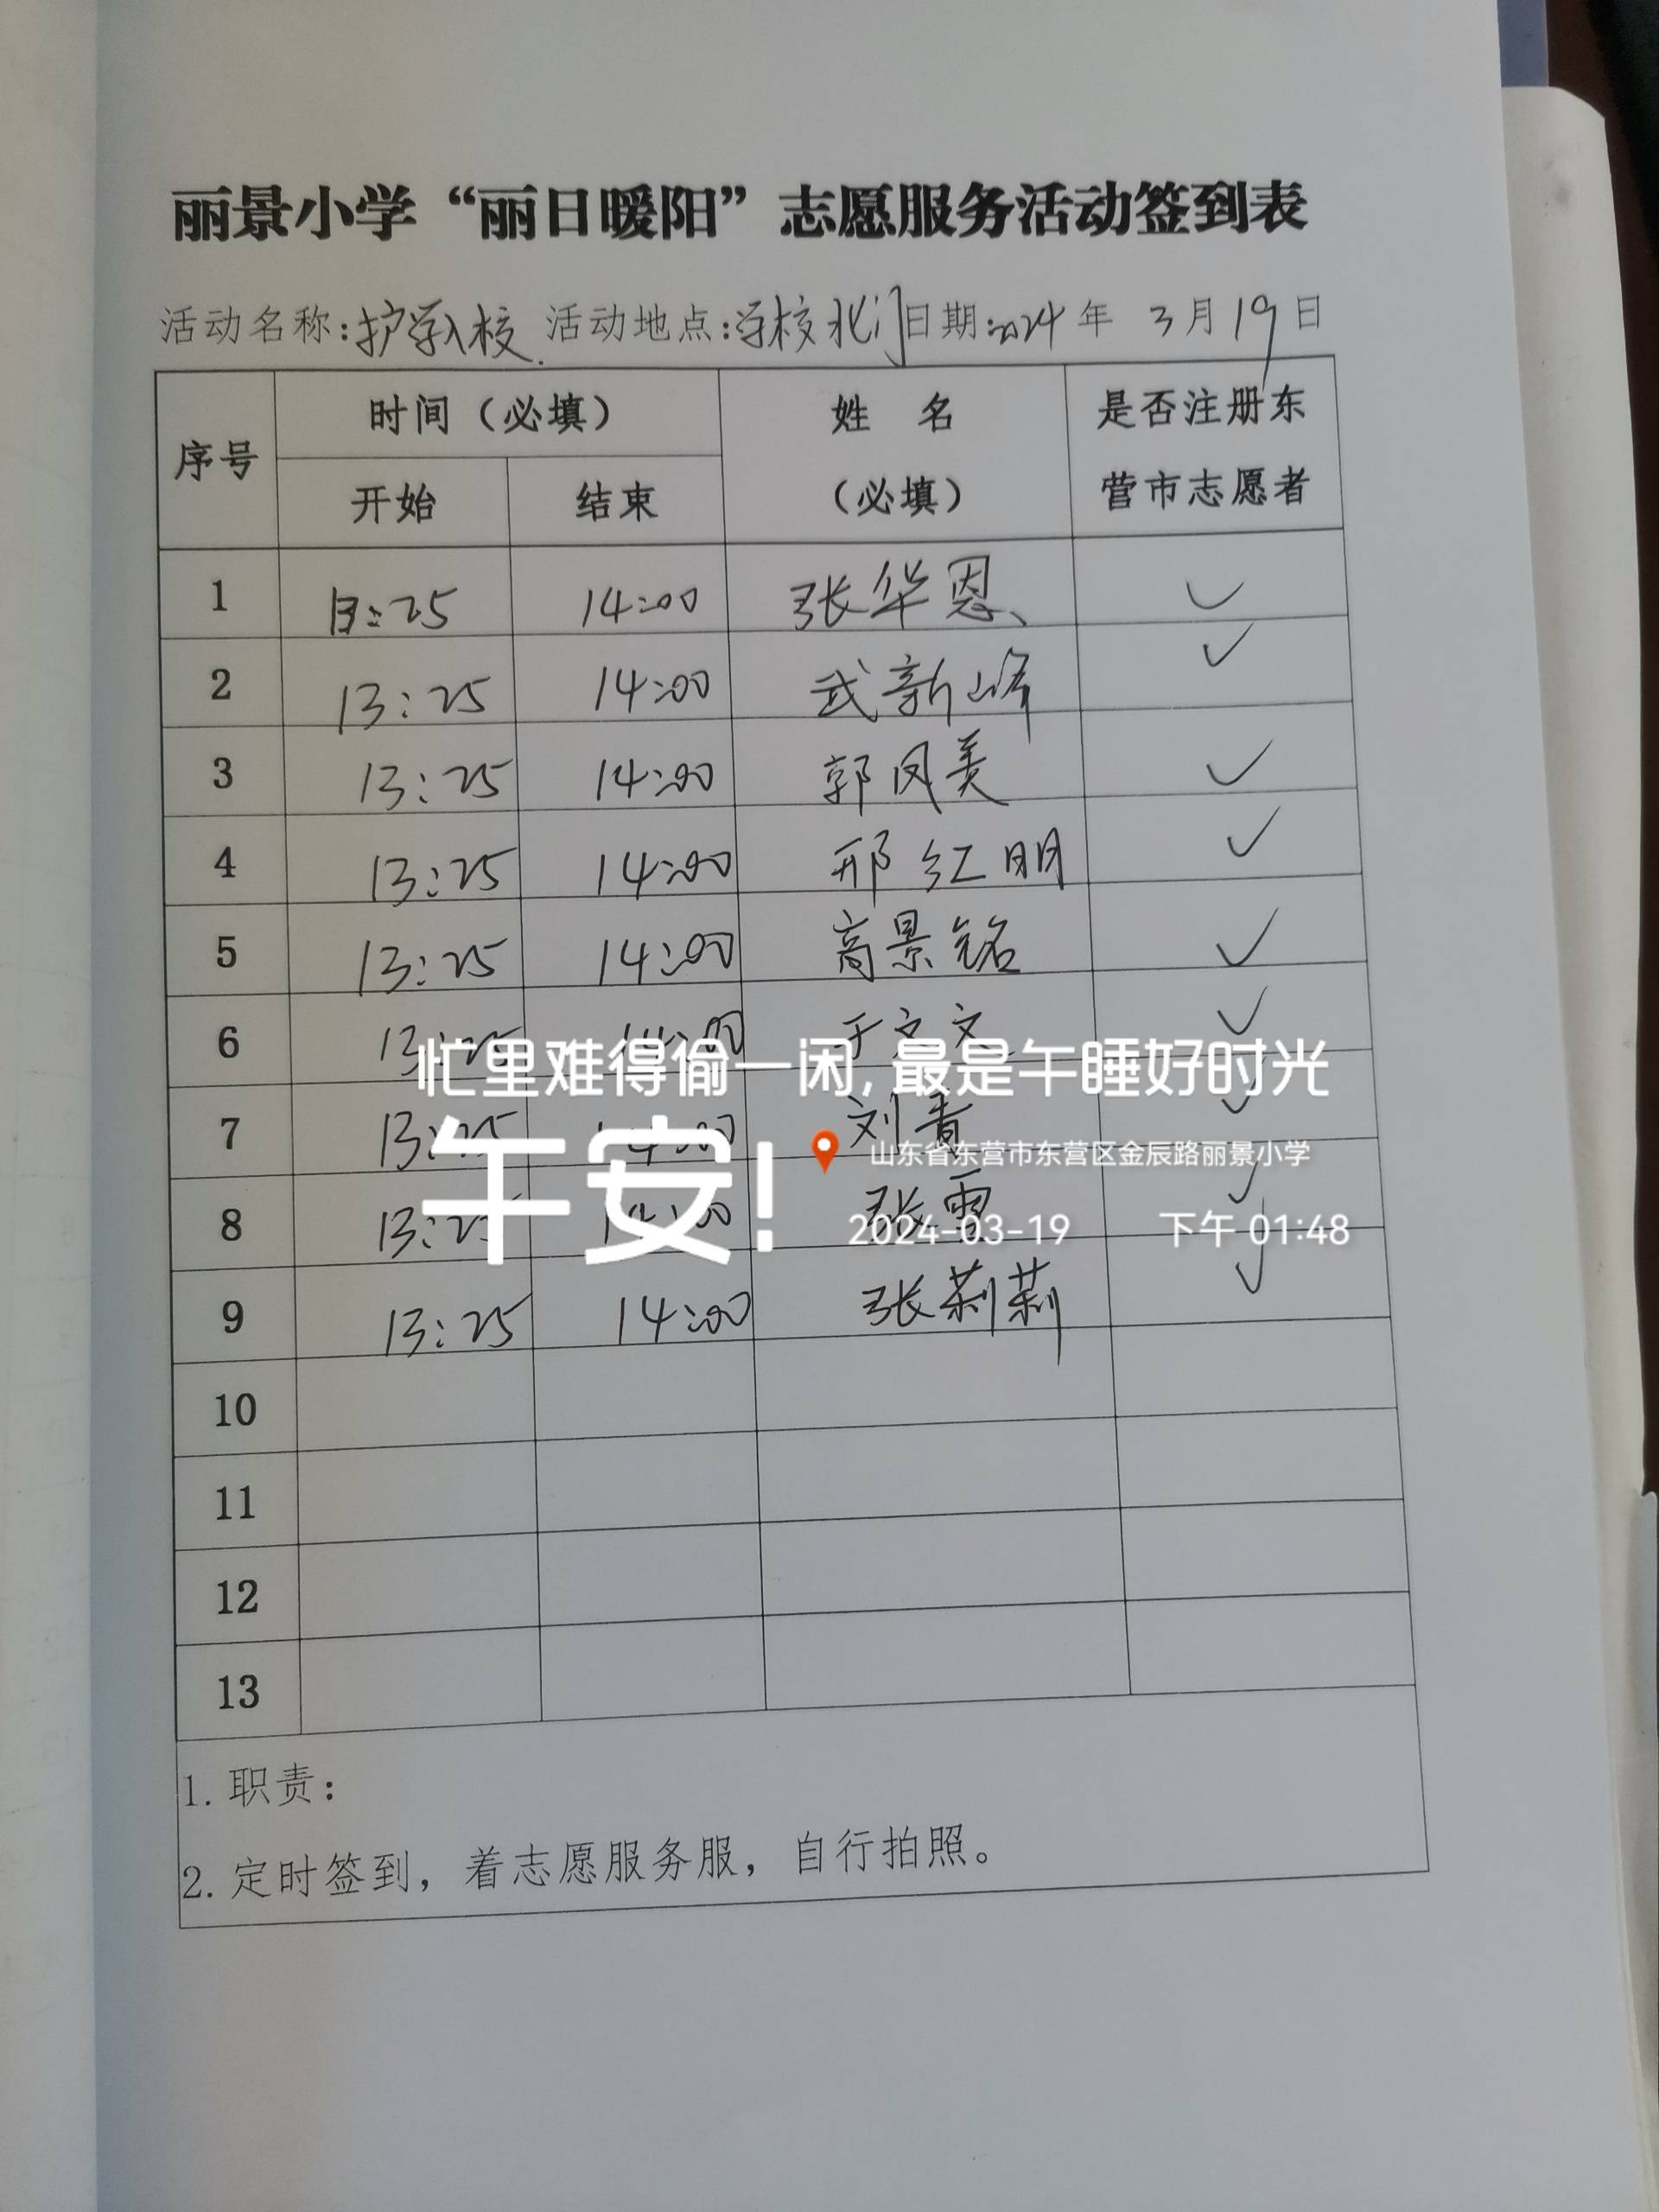 丽景小学“丽日暖阳”志愿服务活动签到表
活动名称:护学入校. 活动地点:学校北门 日期:2024年 3月19日
序号 时间（必填） 姓 名（必填） 是否注册东营市志愿者
开始 结束
1 13:25 14:00 张华恩 ✓
2 13:25 14:00 武新峰 ✓
3 13:25 14:00 郭凤美 ✓
4 13:25 14:00 邢红明 ✓
5 13:25 14:00 高景铭 ✓
6 13:25 14:00 于文文 ✓
忙里难得偷一闲,最是午睡好时光
7 13:25 14:00 刘青 ✓
午安!
山东省东营市东营区金辰路丽景小学
8 13:25 14:00 张雪 ✓
2024-03-19 下午 01:48
9 13:25 14:00 张莉莉 ✓
10
11
12
13
1. 职责：
2. 定时签到，着志愿服务服，自行拍照。